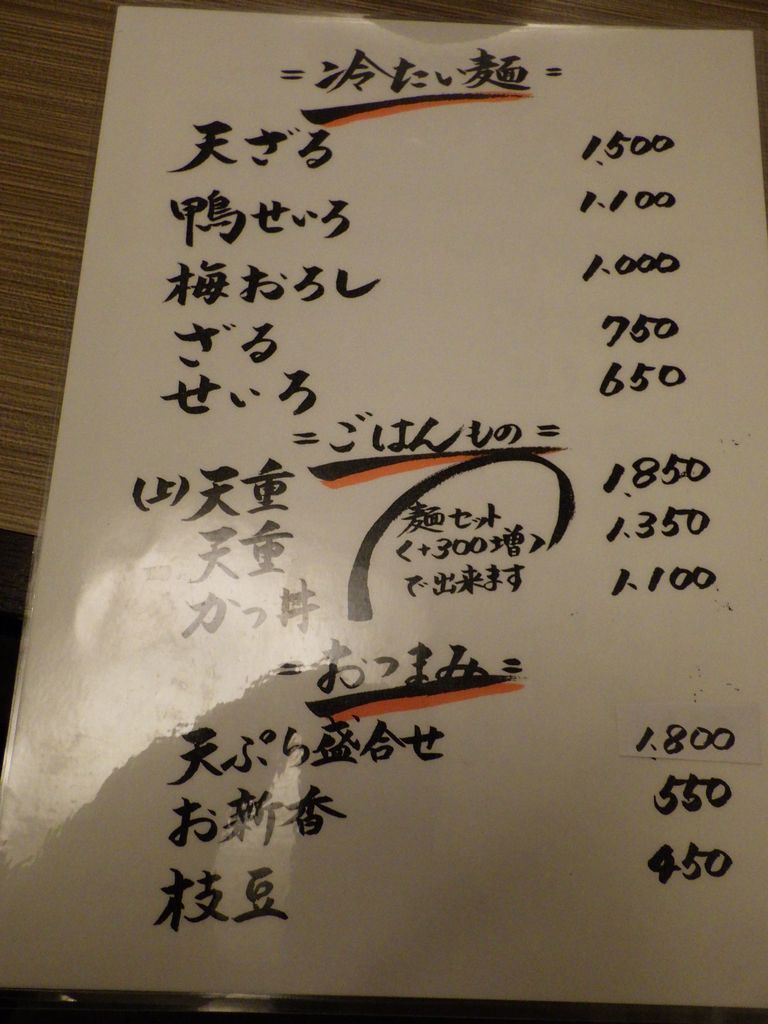 = 冷たい麺 =
天ざる 1,500
鴨せいろ 1,100
梅おろし 1,000
ざる 750
せいろ 650
= ごはんもの =
(上)天重 1,850
天重 1,350
かつ丼 1,100
麺セット
<+300増>
で出来ます
= おつまみ =
天ぷら盛合せ 1,800
お新香 550
枝豆 450